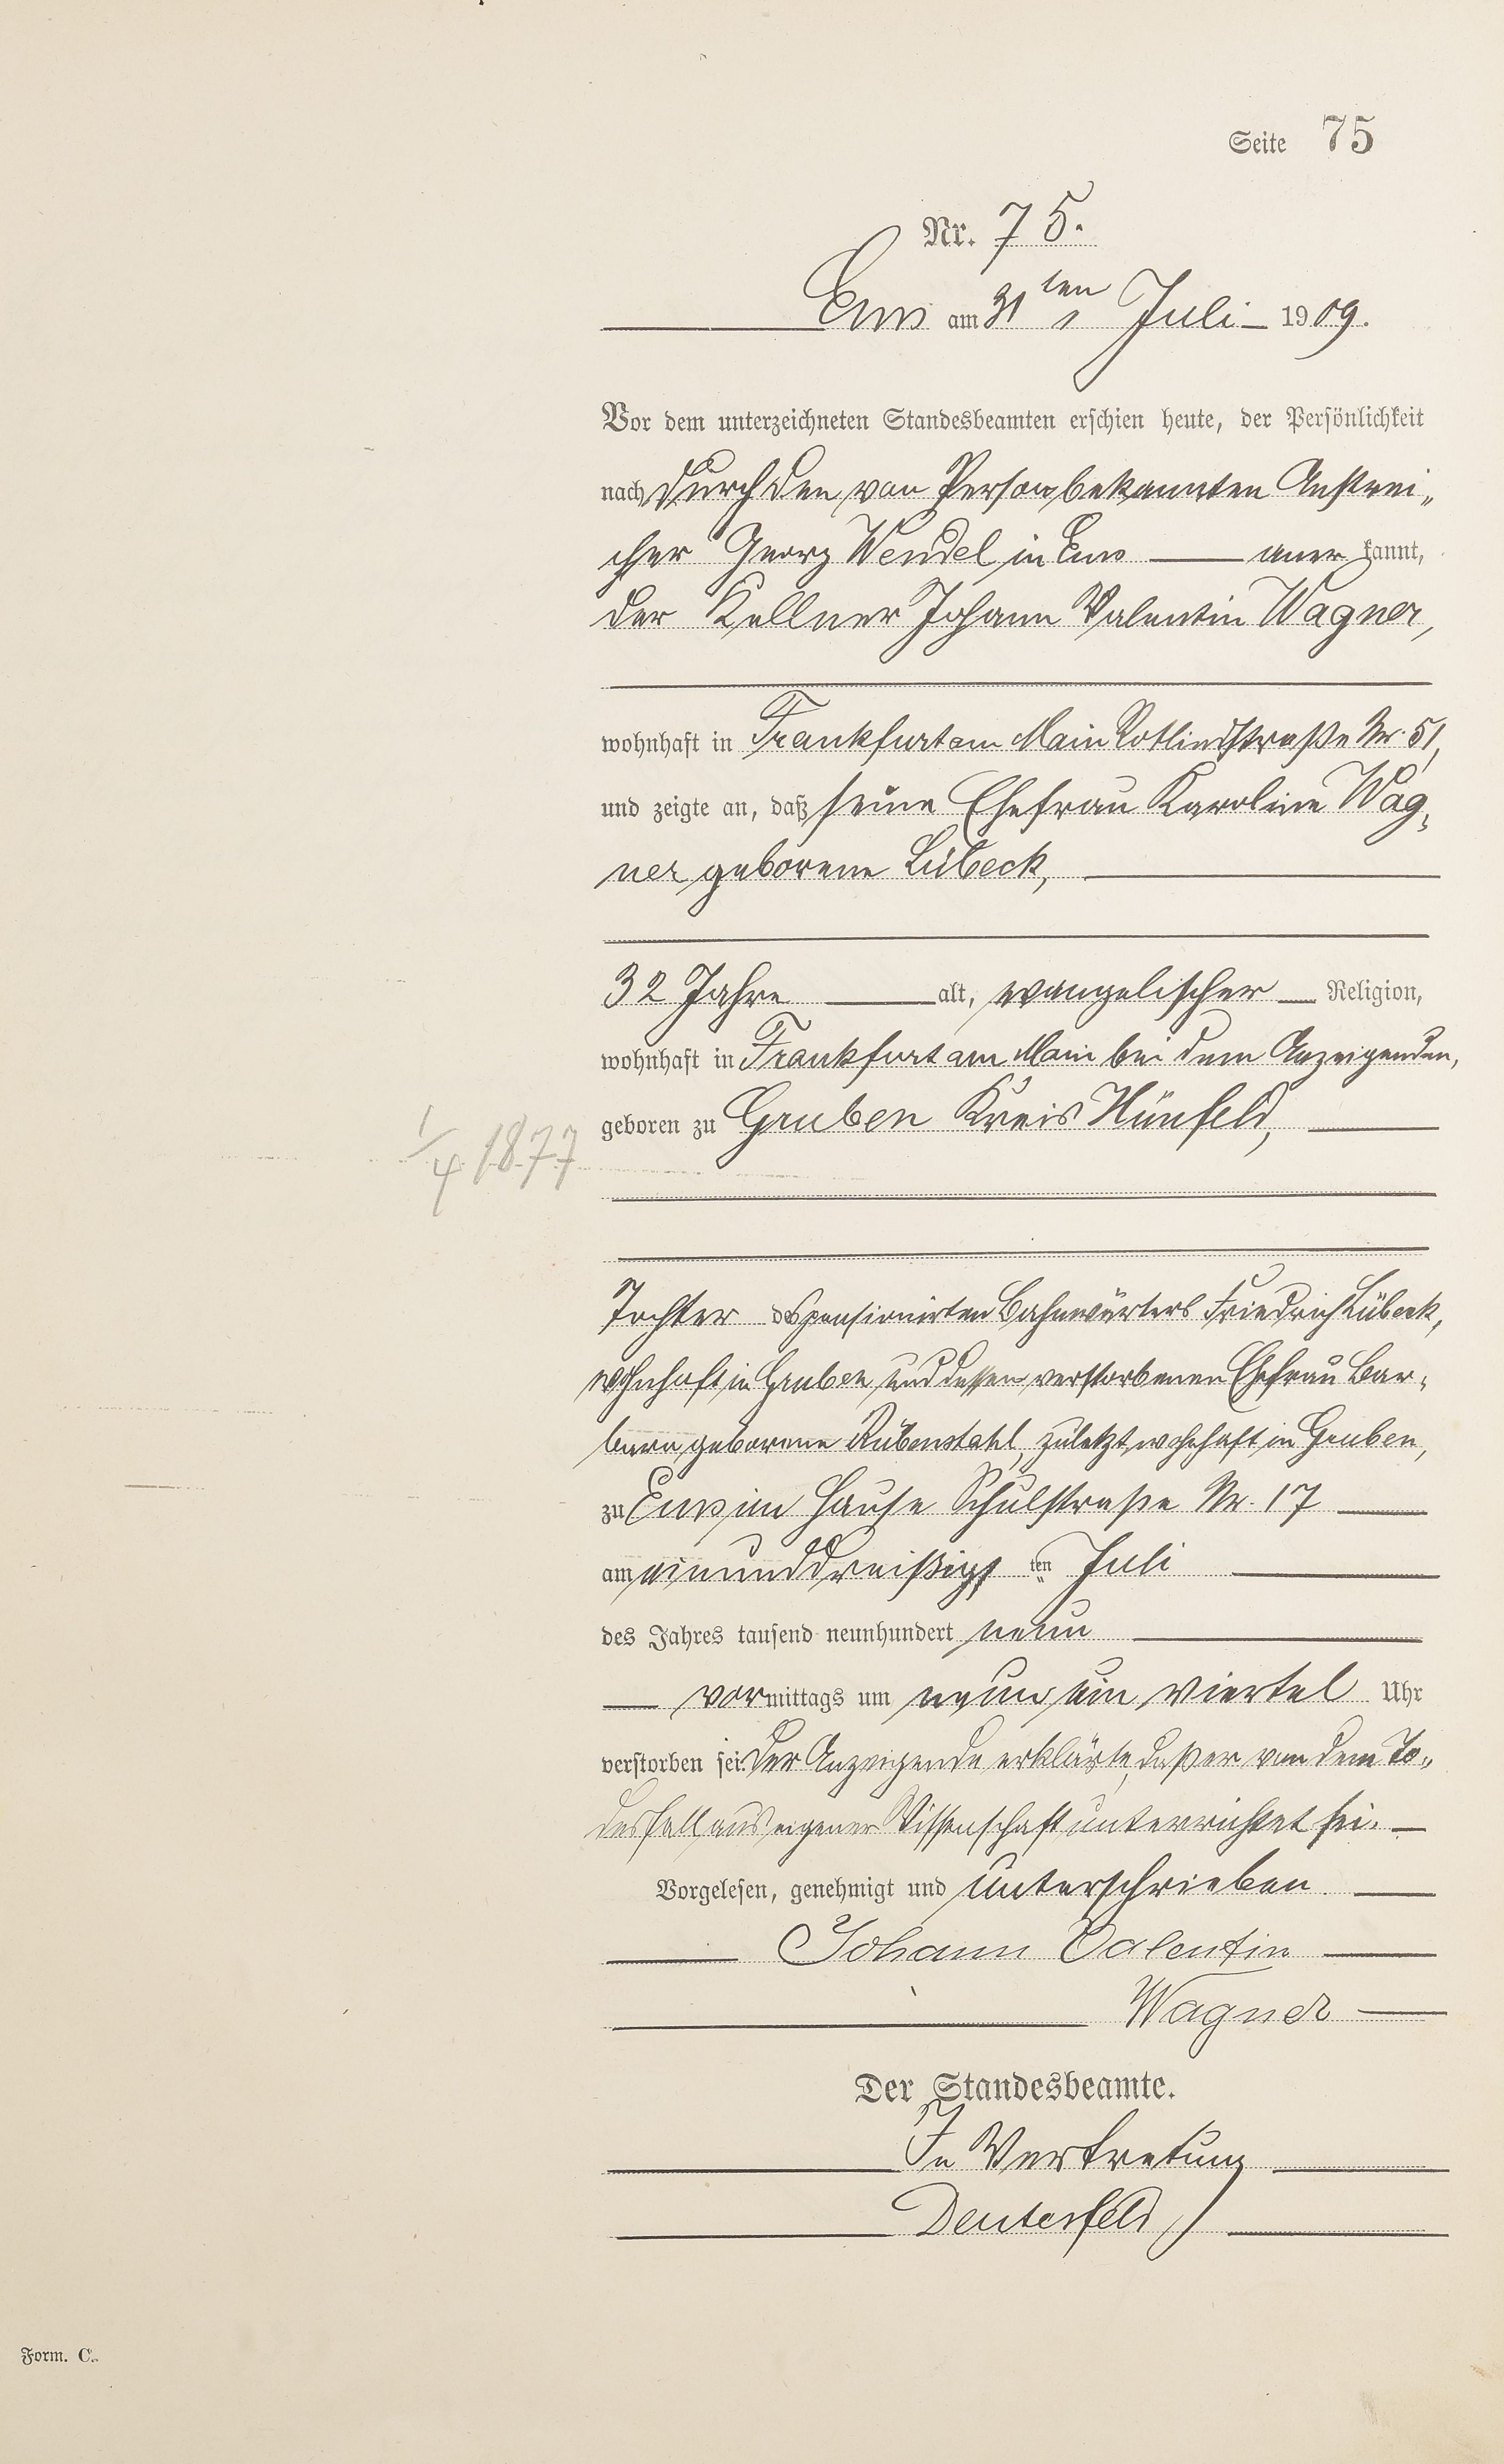 Seite 75
Nr. 75.
Ems am 31ten Juli 1909.
Vor dem unterzeichneten Standesbeamten erschien heute, der Persönlichkeit
nach durch den von Person bekannten Anstrei-
cher Georg Wendel in Ems anerkannt,
der Kellner Johann Valentin Wagner,
wohnhaft in Frankfurt am Main Rotlindstraße Nr. 51,
und zeigte an, daß seine Ehefrau Karoline Wag-
ner geborene Lübeck,
32 Jahre alt, evangelischer Religion,
wohnhaft in Frankfurt am Main bei dem Anzeigenden,
geboren zu Gruben Kreis Hünfeld,
1/4 1877
Tochter des pensionirten Bahnwärters Friedrich Lübeck,
wohnhaft in Gruben und dessen verstorbenen Ehefrau Bar-
bara geborene Rübenstahl, zuletzt wohnhaft in Gruben,
zu Ems im Hause Schulstraße Nr. 17
am einunddreißigsten Juli
des Jahres tausend neunhundert neun
vormittags um neun ein viertel Uhr
verstorben sei. Der Anzeigende erklärte, daß er von dem To-
desfall aus eigener Wissenschaft unterrichtet sei.
Vorgelesen, genehmigt und unterschrieben
Johann Valentin
Wagner
Der Standesbeamte.
In Vertretung
Deuterfeld
Form. C.